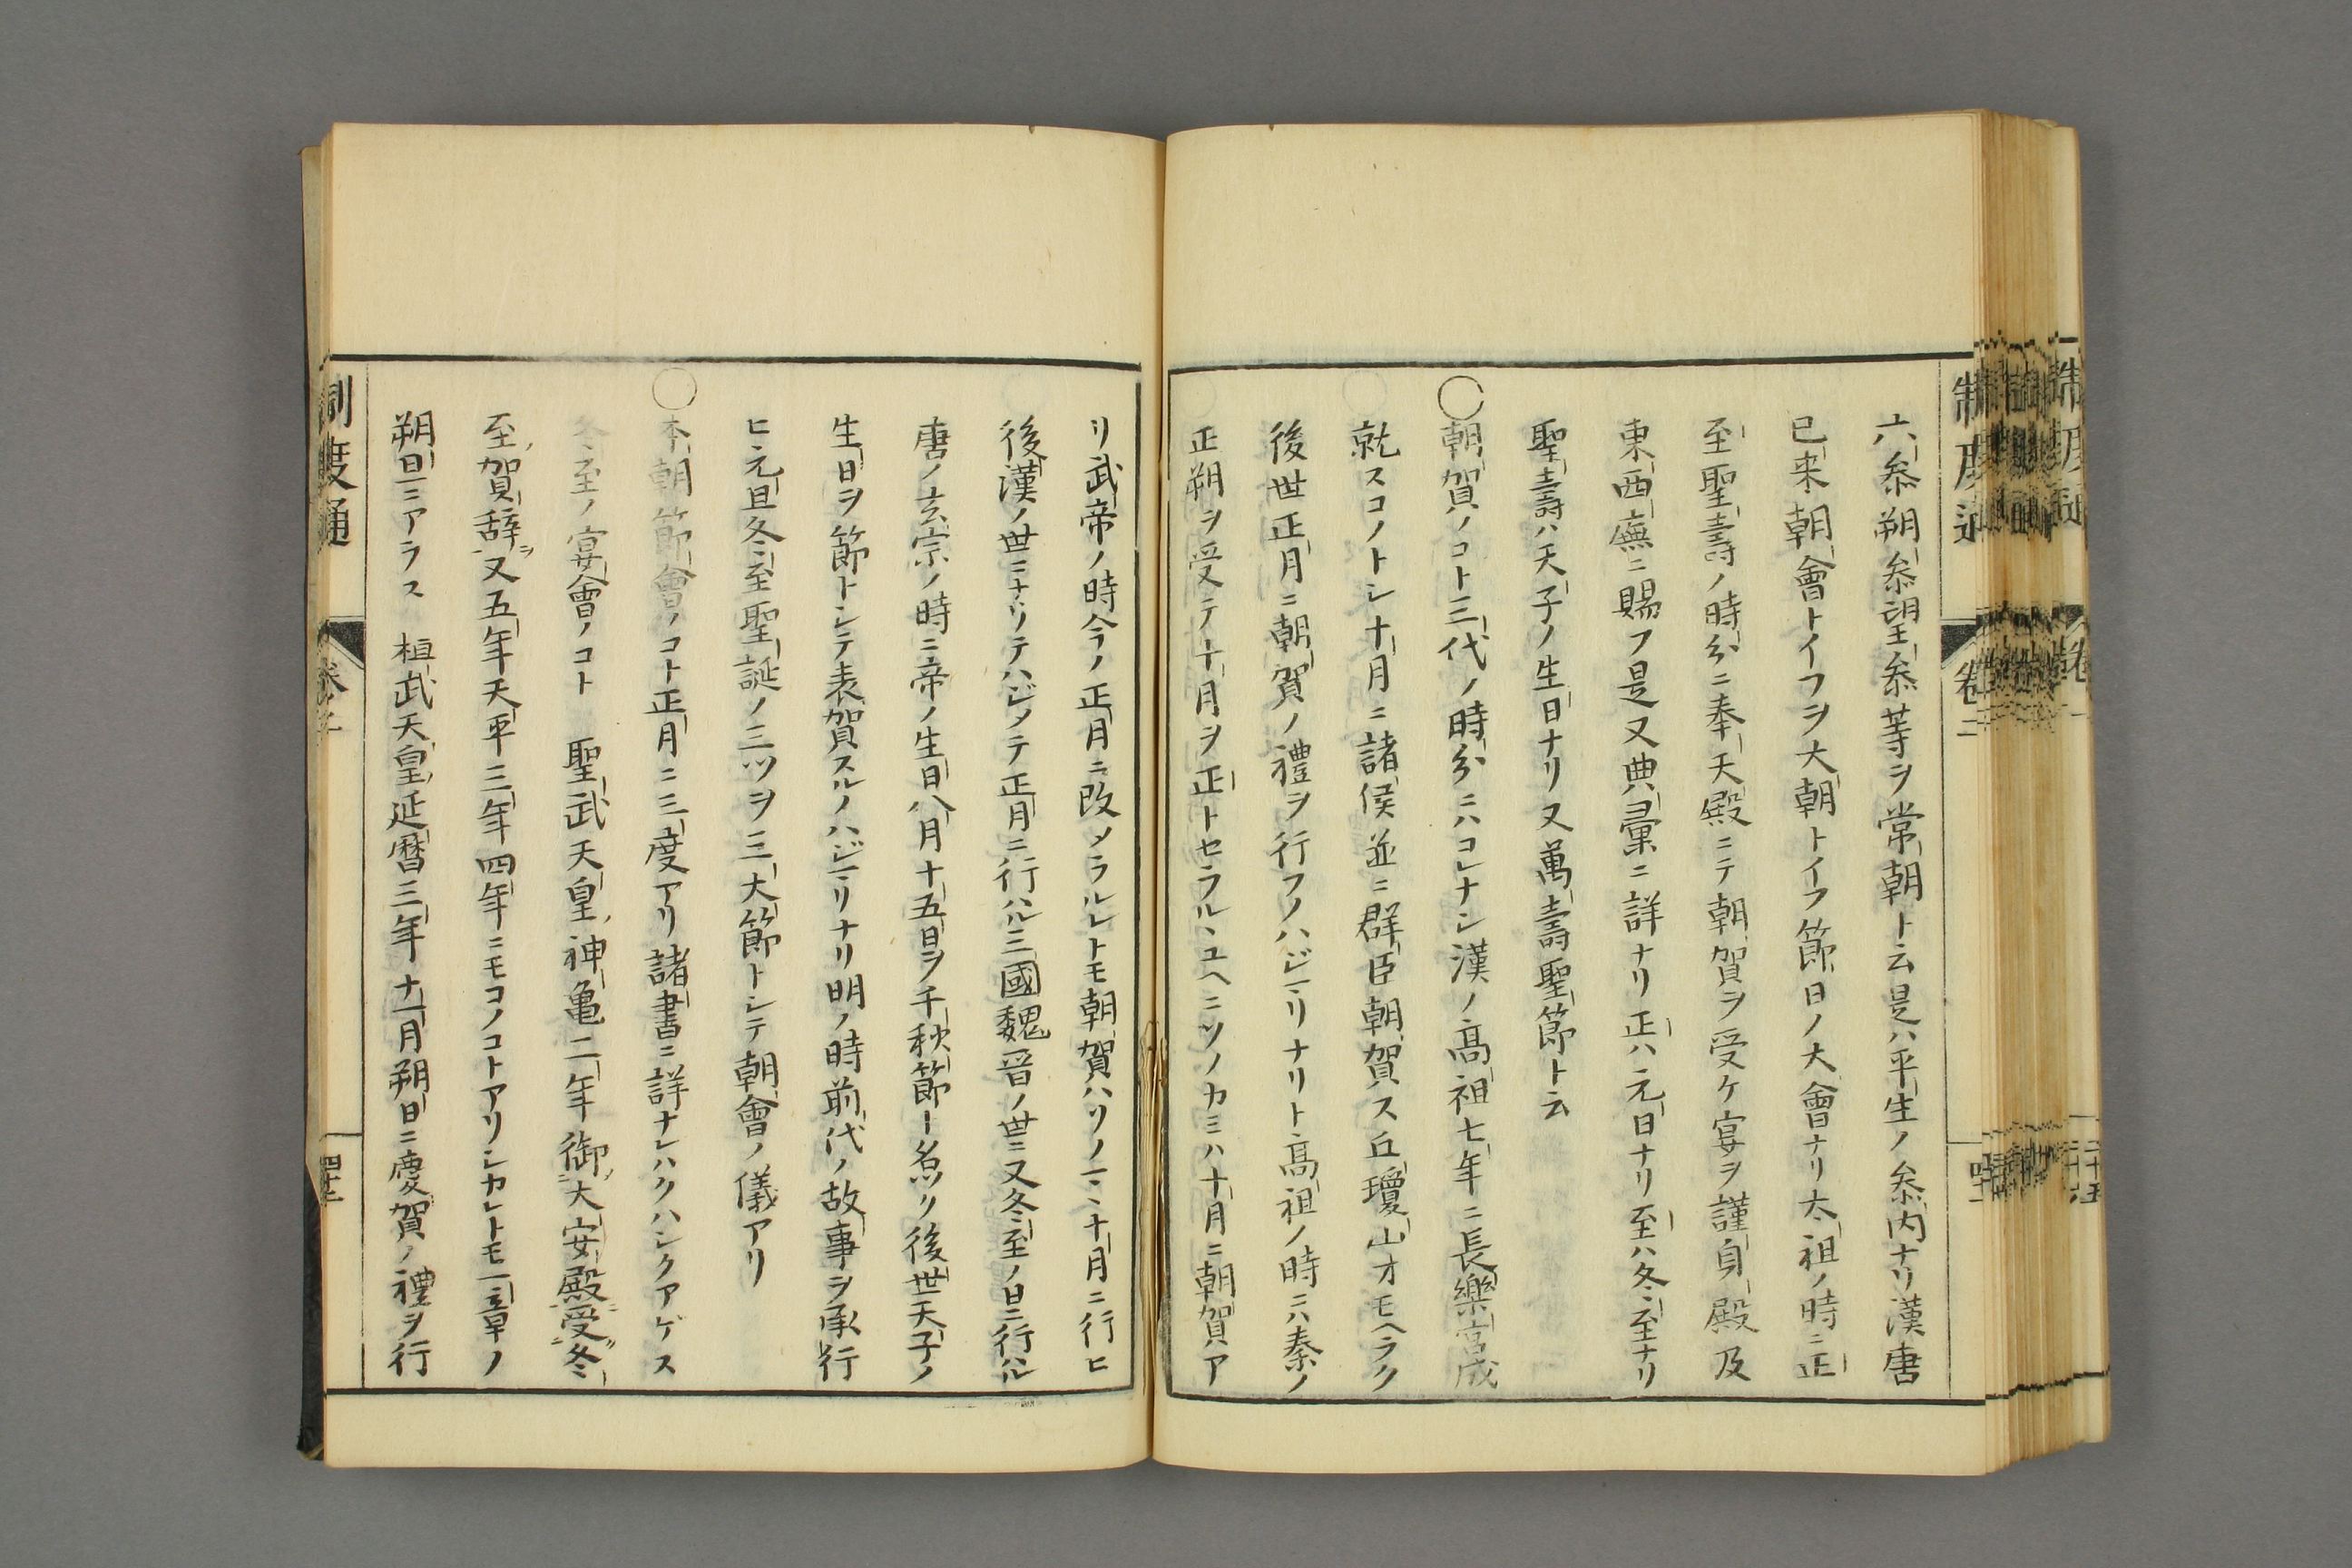 六參朔參望參等ヲ常朝ト云是ハ平生ノ參内ナリ漢唐
已来朝會トイフヲ大朝トイフ節日ノ大會ナリ太祖ノ時ニ正
至聖壽ノ時分ニ奉天殿ニテ朝賀ヲ受ケ宴ヲ謹身殿及
東西廡ニ賜フ是又典彙ニ詳ナリ正ハ元日ナリ至ハ冬至ナリ
聖壽ハ天子ノ生日ナリ又萬壽聖節ト云
○朝賀ノコト三代ノ時分ニハコレナシ漢ノ高祖七年ニ長樂宮成
就スコノトシ十月ニ諸侯並ニ群臣朝賀ス丘瓊山オモヘラク
後世正月ニ朝賀ノ禮ヲ行フノハジマリナリト高祖ノ時ニハ秦ノ
正朔ヲ受テ十月ヲ正トセラル、ユヘニソノカミハ十月ニ朝賀ア
リ武帝ノ時今ノ正月ニ改メラルレトモ朝賀ハソノマヽ十月ニ行ヒ
後漢ノ世ニナリテハジメテ正月ニ行ハル三國魏晉ノ世ニ又冬至ノ日ニ行ハル
唐ノ玄宗ノ時ニ帝ノ生日八月十五日ヲ千秋節ト名ツク後世天子ノ
生日ヲ節トシテ表賀スルノハジマリナリ明ノ時前代ノ故事ヲ承行
ヒ元旦冬至聖誕ノ三ツヲ三大節トシテ朝會ノ儀アリ
○本朝節會ノコト正月ニ三度アリ諸書ニ詳ナレハクハシクアゲス
冬至ノ宴會ノコト　聖武天皇神亀二年御大安殿受冬
至賀辭又五年天平三年四年ニモコノコトアリシカレトモ一章ノ
朔旦ニアラス　桓武天皇延暦三年十一月朔日ニ慶賀ノ禮ヲ行
制度通
卷二